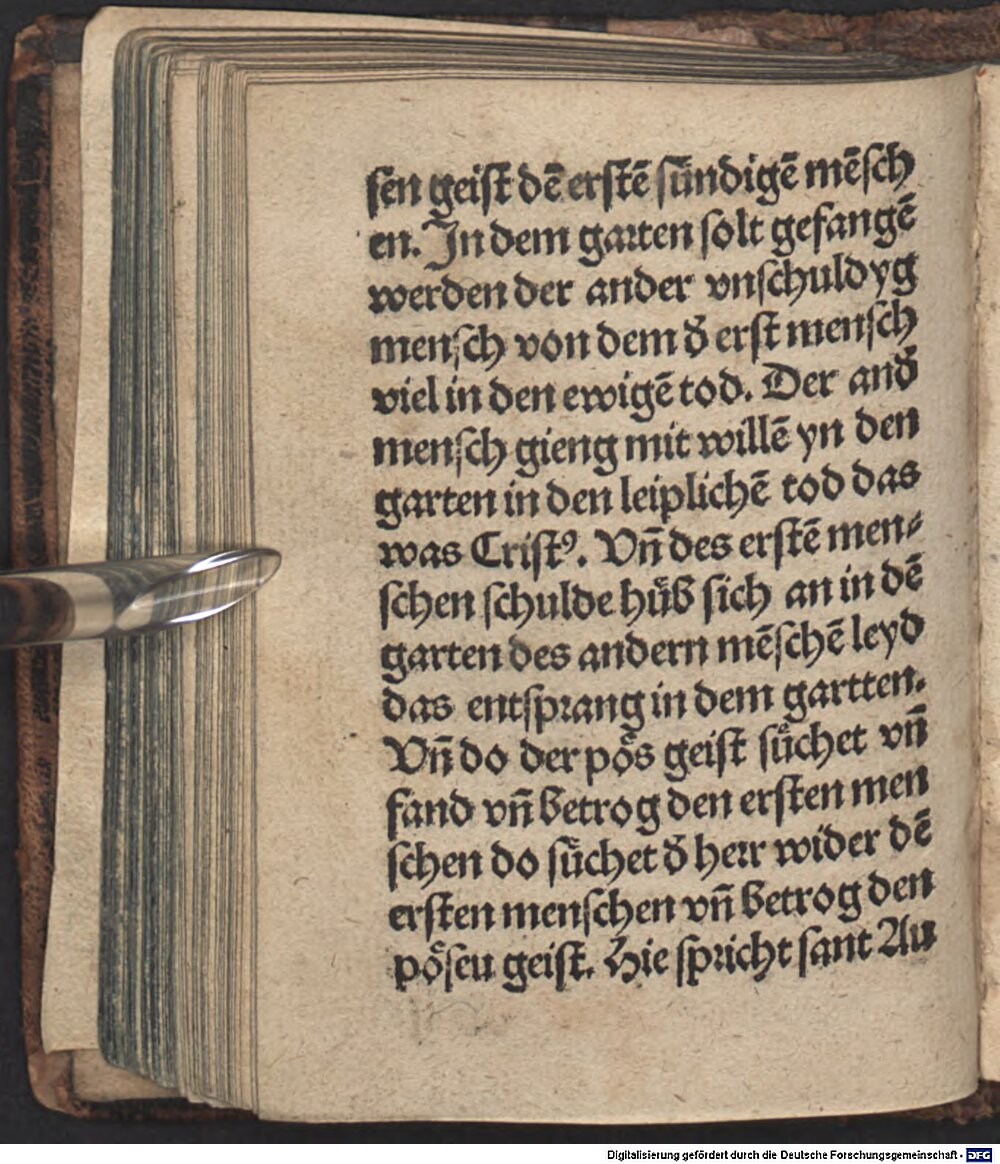 ſen geiſt dē erſtē ſündigē mēſch
en. In dem garten ſolt gefangē
werden der ander vnſchuldyg
menſch von dem đ erſt menſch
viel in den ewigē tod. Der anđ
menſch gieng mit willē yn den
garten in den leiplichē tod das
was Criſtꝰ. Vn̄ des erſtē men⸗
ſchen ſchulde huͤb ſich an in dē
garten des andern mēſchē leyd
das entſprang in dem gartten.
Vn̄ do der poͤs geiſt ſuͤchet vn̄
fand vn̄ betrog den erſten men
ſchen do ſuͤchet đ herr wider dē
erſten menſchen vn̄ betrog den
poͤſeu geiſt. Hie ſpricht ſant Au
Digitalisierung gefördert durch die Deutsche Forschungsgemeinschaft - DFG